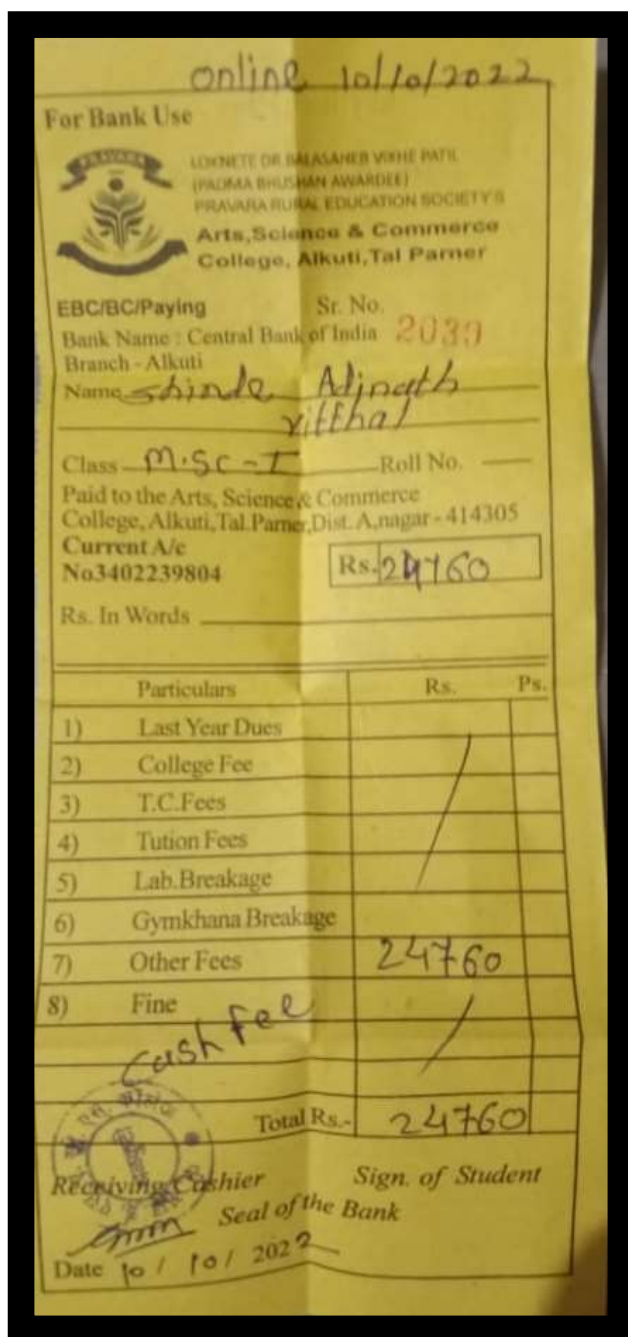 online 10/10/2022
For Bank Use
PRAVARA
LOKNETE DR. BALASAHEB VIKHE PATIL
(PADMA BHUSHAN AWARDEE)
PRAVARA RURAL EDUCATION SOCIETY'S
Arts,Science & Commerce
College, Alkuti,Tal Parner
EBC/BC/Paying Sr. No.
Bank Name : Central Bank of India 2039
Branch - Alkuti
Name Shinde Adinath
Vitthal
Class M.SC-I Roll No.
Paid to the Arts, Science & Commerce
College, Alkuti,Tal.Parner,Dist. A,nagar - 414305
Current A/c
No3402239804 Rs. 24760
Rs. In Words
Particulars Rs. Ps.
1) Last Year Dues
2) College Fee
3) T.C.Fees
4) Tution Fees
5) Lab.Breakage
6) Gymkhana Breakage
7) Other Fees 24760
8) Fine
Cash Fee
Total Rs.- 24760
Receiving Cashier Sign. of Student
Seal of the Bank
Date 10 / 10 / 2022